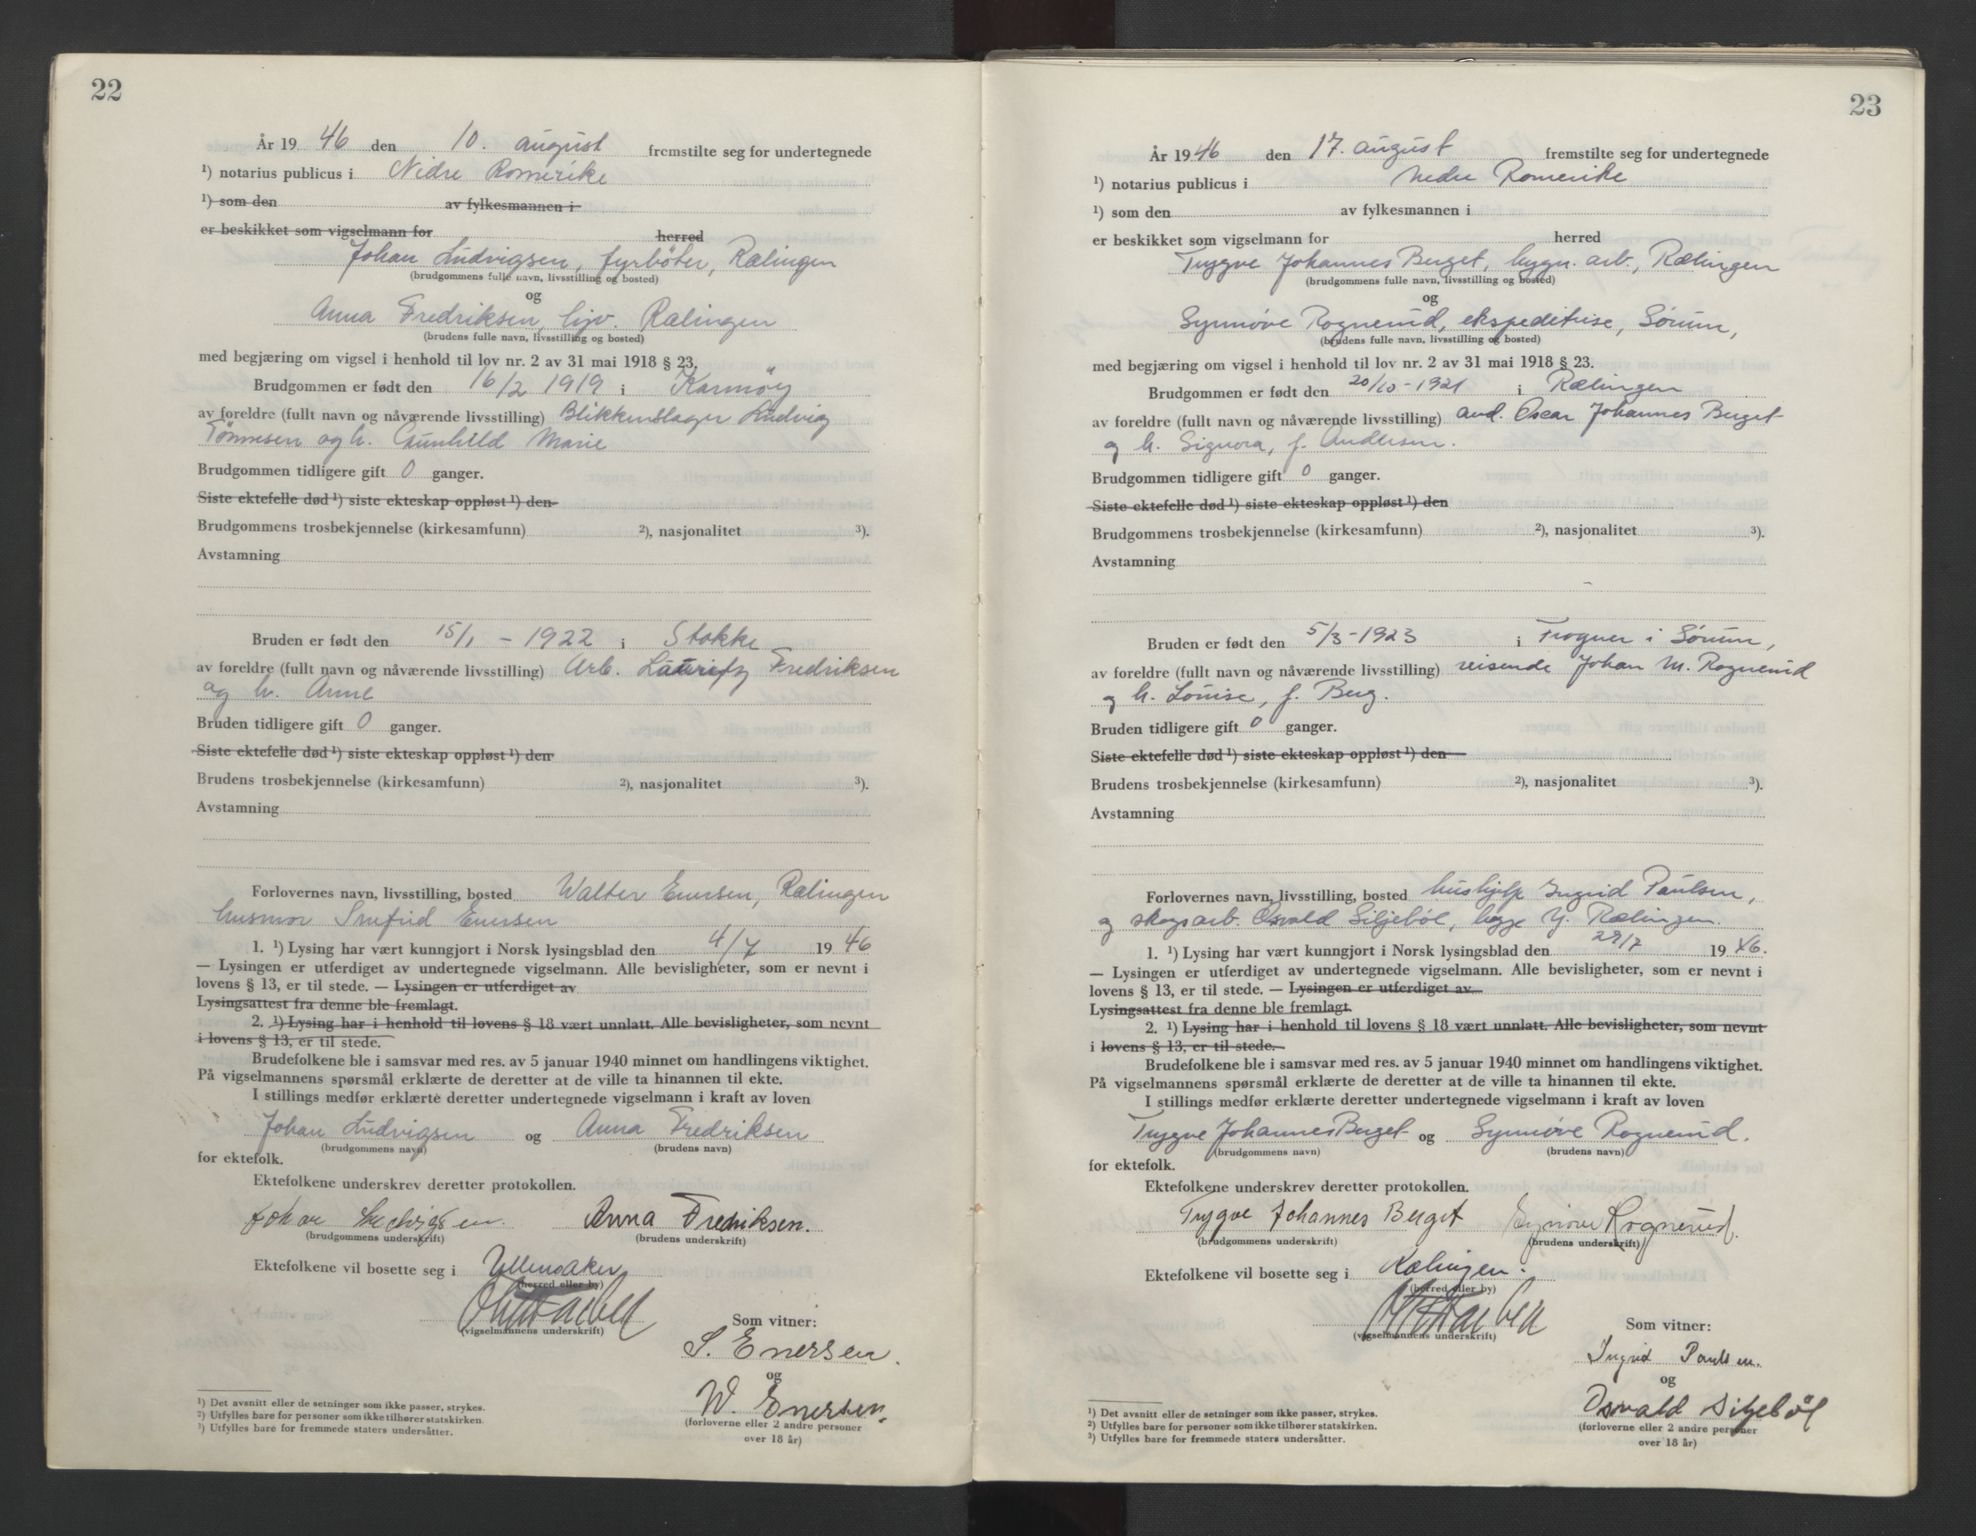 22
År 19 46 den 10. august fremstilte seg for undertegnede
¹) notarius publicus i Nidre Romerike
¹) som den av fylkesmannen i
er beskikket som vigselmann for herred
Johan Ludvigsen, fyrbøter, Rælingen
(brudgommens fulle navn, livsstilling og bosted)
og
Anna Fredriksen, hjv. Rælingen
(brudens fulle navn, livsstilling og bosted)
med begjæring om vigsel i henhold til lov nr. 2 av 31 mai 1918 § 23.
Brudgommen er født den 16/2 1919 i Karmøy
av foreldre (fullt navn og nåværende livsstilling) Blikkenslager Ludvig
Tønnesen og h. Gunhild Marie
Brudgommen tidligere gift 0 ganger.
Siste ektefelle død ¹) siste ekteskap oppløst ¹) den
Brudgommens trosbekjennelse (kirkesamfunn) ²), nasjonalitet ³).
Avstamning
Bruden er født den 15/1 - 1922 i Stokke
av foreldre (fullt navn og nåværende livsstilling) Arb. Lauritz Fredriksen
og h. Anne
Bruden tidligere gift 0 ganger.
Siste ektefelle død ¹) siste ekteskap oppløst ¹) den
Brudens trosbekjennelse (kirkesamfunn) ²), nasjonalitet ³).
Avstamning
Forlovernes navn, livsstilling, bosted Walter Enersen, Rælingen
husmor Enersen
1. ¹) Lysing har vært kunngjort i Norsk lysingsblad den 4/7 19 46
— Lysingen er utferdiget av undertegnede vigselmann. Alle bevisligheter, som er nevnt i
lovens § 13, er til stede. — Lysingen er utferdiget av
Lysingsattest fra denne ble fremlagt.
2. ¹) Lysing har i henhold til lovens § 18 vært unnlatt. Alle bevisligheter, som nevnt
i lovens § 13, er til stede.
Brudefolkene ble i samsvar med res. av 5 januar 1940 minnet om handlingens viktighet.
På vigselmannens spørsmål erklærte de deretter at de ville ta hinannen til ekte.
I stillings medfør erklærte deretter undertegnede vigselmann i kraft av loven
Johan Ludvigsen og Anna Fredriksen
(brudgommens navn) (brudens navn)
for ektefolk.
Ektefolkene underskrev deretter protokollen.
Johan Ludvigsen. Anna Fredriksen.
(brudgommens underskrift) (brudens underskrift)
Ektefolkene vil bosette seg i Ullensaker
(herred eller by)
(vigselmannens underskrift)
Som vitner:
S. Enersen.
og
W. Enersen.
(forloverne eller 2 andre personer
over 18 år)
¹) Det avsnitt eller de setninger som ikke passer, strykes.
²) Utfylles bare for personer som ikke tilhører statskirken.
³) Utfylles bare for fremmede staters undersåtter.
23
År 19 46 den 17. august fremstilte seg for undertegnede
¹) notarius publicus i Nedre Romerike
¹) som den av fylkesmannen i
er beskikket som vigselmann for herred
Trygve Johannes Berget, bygn. arb., Rælingen
(brudgommens fulle navn, livsstilling og bosted)
og
Synnøve Rognerud, ekspeditrise, Sørum,
(brudens fulle navn, livsstilling og bosted)
med begjæring om vigsel i henhold til lov nr. 2 av 31 mai 1918 § 23.
Brudgommen er født den 20/10 - 1921 i Rælingen
av foreldre (fullt navn og nåværende livsstilling) Oscar Johannes Berget
og h. Signora, f. Andersen.
Brudgommen tidligere gift 0 ganger.
Siste ektefelle død ¹) siste ekteskap oppløst ¹) den
Brudgommens trosbekjennelse (kirkesamfunn) ²), nasjonalitet ³).
Avstamning
Bruden er født den 5/3 - 1923 i Frogner i Sørum,
av foreldre (fullt navn og nåværende livsstilling) reisende Johan M. Rognerud
og h. Louise, f. Berg.
Bruden tidligere gift 0 ganger.
Siste ektefelle død ¹) siste ekteskap oppløst ¹) den
Brudens trosbekjennelse (kirkesamfunn) ²), nasjonalitet ³).
Avstamning
Forlovernes navn, livsstilling, bosted hushjelp Ingrid Paulsen,
og skogsarb. Osvald Siljebøl, begge Rælingen.
1. ¹) Lysing har vært kunngjort i Norsk lysingsblad den 29/7 19 46.
— Lysingen er utferdiget av undertegnede vigselmann. Alle bevisligheter, som er nevnt i
lovens § 13, er til stede. — Lysingen er utferdiget av
Lysingsattest fra denne ble fremlagt.
2. ¹) Lysing har i henhold til lovens § 18 vært unnlatt. Alle bevisligheter, som nevnt
i lovens § 13, er til stede.
Brudefolkene ble i samsvar med res. av 5 januar 1940 minnet om handlingens viktighet.
På vigselmannens spørsmål erklærte de deretter at de ville ta hinannen til ekte.
I stillings medfør erklærte deretter undertegnede vigselmann i kraft av loven
Trygve Johannes Berget og Synnøve Rognerud.
(brudgommens navn) (brudens navn)
for ektefolk.
Ektefolkene underskrev deretter protokollen.
Trygve Johannes Berget Synnøve Rognerud.
(brudgommens underskrift) (brudens underskrift)
Ektefolkene vil bosette seg i Rælingen.
(herred eller by)
(vigselmannens underskrift)
Som vitner:
Ingrid Paulsen.
og
Osvald Siljebøl
(forloverne eller 2 andre personer
over 18 år)
¹) Det avsnitt eller de setninger som ikke passer, strykes.
²) Utfylles bare for personer som ikke tilhører statskirken.
³) Utfylles bare for fremmede staters undersåtter.